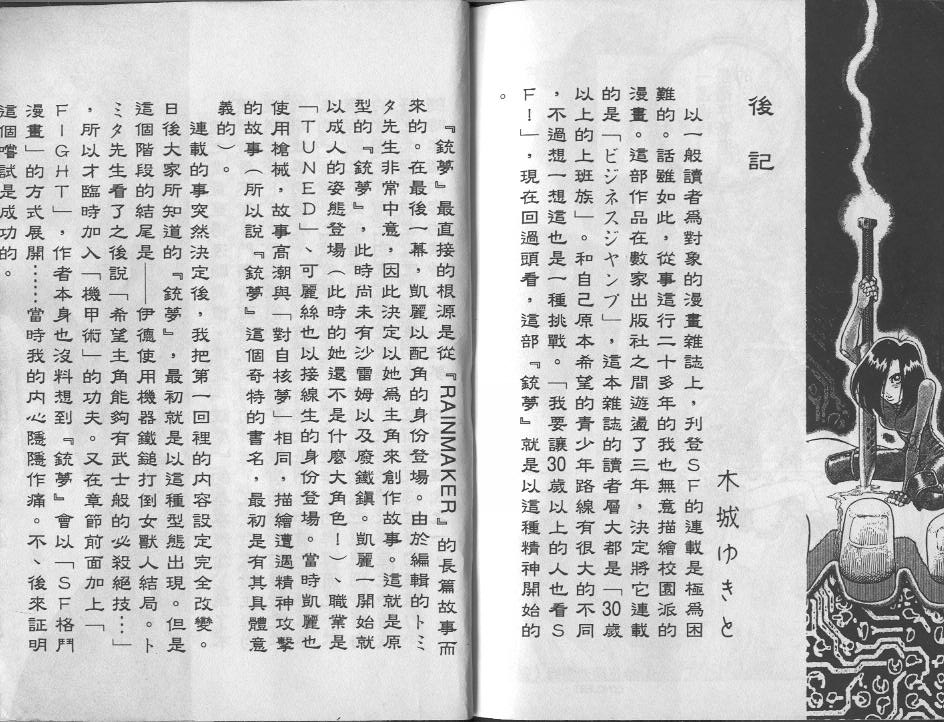 後記
木城ゆきと
以一般讀者爲對象的漫畫雜誌上，刋登ＳＦ的連載是極爲困
難的。話雖如此，從事這行二十多年的我也無意描繪校園派的
漫畫。這部作品在數家出版社之間遊盪了三年，決定將它連載
的是「ビジネスジャンプ」，這本雜誌的讀者層大都是「30歲
以上的上班族」。和自己原本希望的青少年路線有很大的不同
，不過想一想這也是一種挑戰。「我要讓30歲以上的人也看Ｓ
Ｆ！」，現在回過頭看，這部『銃夢』就是以這種精神開始的
。
『銃夢』最直接的根源是從『RAINMAKER』的長篇故事而
來的。在最後一幕，凱麗以配角的身份登場。由於編輯的トミ
タ先生非常中意，因此決定以她爲主角來創作故事。這就是原
型的『銃夢』，此時尚未有沙雷姆以及廢鐵鎭。凱麗一開始就
以成人的姿態登場（此時的她還不是什麼大角色！）、職業是
「ＴＵＮＥＤ」、可麗絲也以接線生的身份登場。當時凱麗也
使用槍械，故事高潮與「對自核夢」相同，描繪遭遇精神攻擊
的故事（所以說『銃夢』這個奇特的書名，最初是有其具體意
義的）。
連載的事突然決定後，我把第一回裡的內容設定完全改變。
日後大家所知道的『銃夢』，最初就是以這種型態出現。但是
這個階段的結尾是——伊德使用機器鐵鎚打倒女獸人結局。ト
ミタ先生看了之後說「希望主角能夠有武士般的必殺絕技…」
，所以才臨時加入「機甲術」的功夫。又在章節前面加上「
ＦＩＧＨＴ」，作者本身也沒料想到『銃夢』會以「ＳＦ格鬥
漫畫」的方式展開……當時我的內心隱隱作痛。不、後來証明
這個嚐試是成功的。